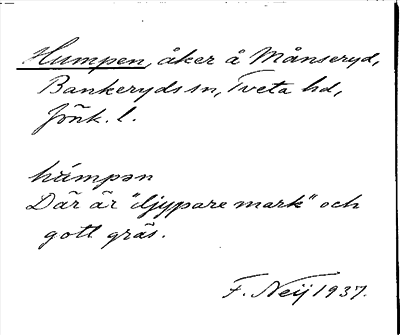 Humpen, åker å Månseryd,
Bankeryds sn, Tveta hd,
Jönk. l.
hümpən
Där är "djypare mark" och
gott gräs.
F. Neij 1937.